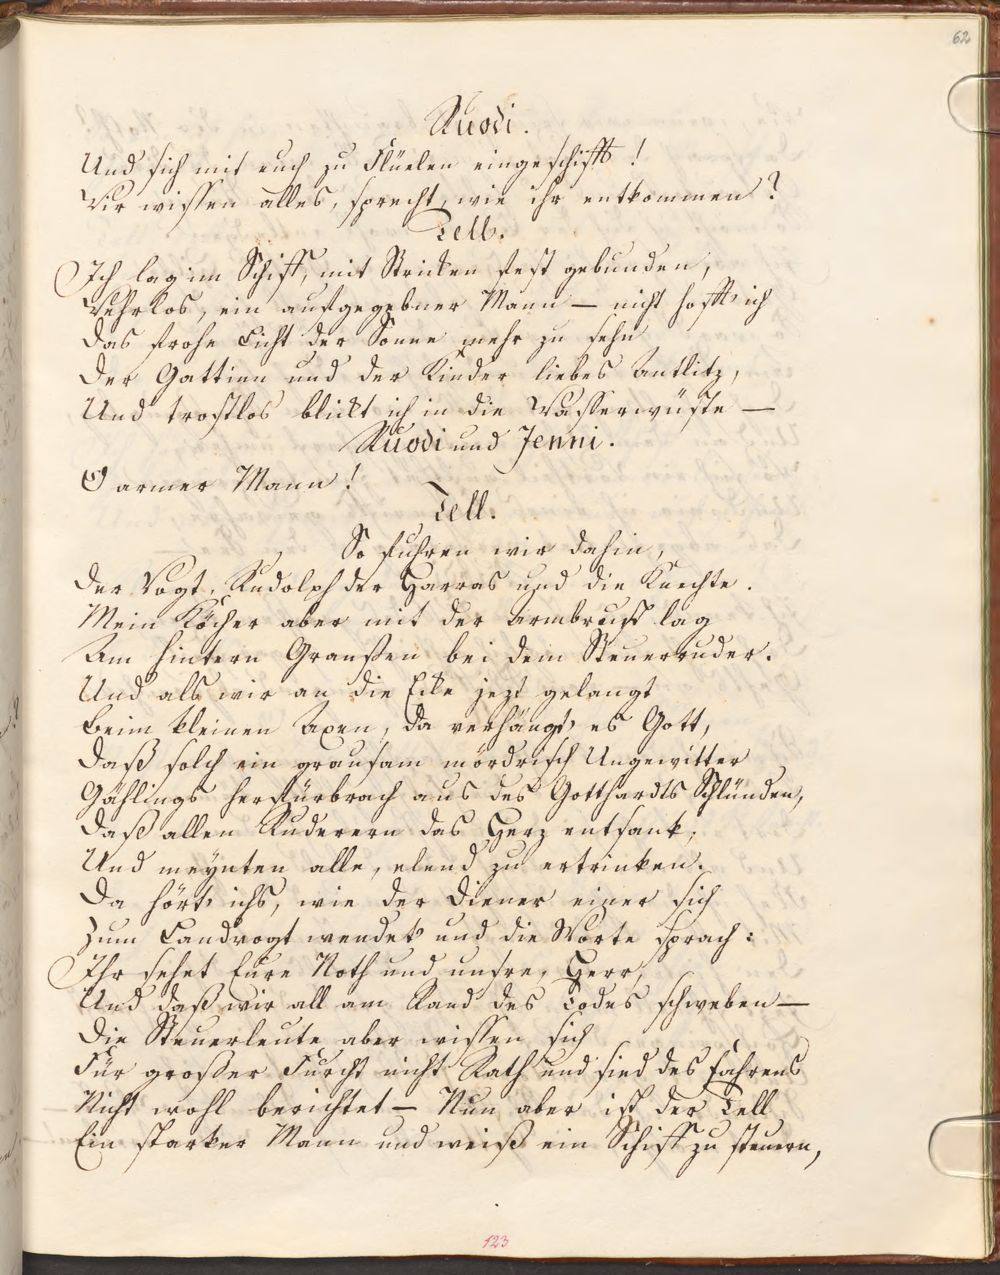 62
Ruodi.
Und sich mit euch zu Flüelen eingeschifft!
Wir wissen alles, sprecht, wie ihr entkommen?
Tell.
Ich lag im Schiff, mit Stricken fest gebunden,
Wehrlos, ein aufgegebner Mann — nicht hofft' ich
Das frohe Licht der Sonne mehr zu sehn
Der Gattinn und der Kinder liebes Antlitz,
Und trostlos blickt ich in die Wasserwüste —
Ruodi und Jenni.
O armer Mann!
Tell.
So fuhren wir dahin,
Der Vogt, Rudolph der Harras und die Knechte.
Mein Köcher aber mit der Armbrust lag
Am hintern Granßen bei dem Steuerruder.
Und als wir an die Ecke jezt gelangt
Beim kleinen Axen, da verhängt' es Gott,
Daß solch ein grausam mördrisch Ungewitter
Gählings herfürbrach aus des Gotthardts Schlünden,
Daß allen Ruderern das Herz entsank,
Und meynten alle, elend zu ertrinken.
Da hört' ichs, wie der Diener einer sich
Zum Landvogt wendet' und die Worte sprach:
Ihr sehet Eure Noth und unsre, Herr,
Und daß wir all am Rand des Todes schweben —
Die Steuerleute aber wissen sich
Für großer Furcht nicht Rath und sind des Fahrens
Nicht wohl berichtet — Nun aber ist der Tell
Ein starker Mann und weiß ein Schiff zu steuern,
123